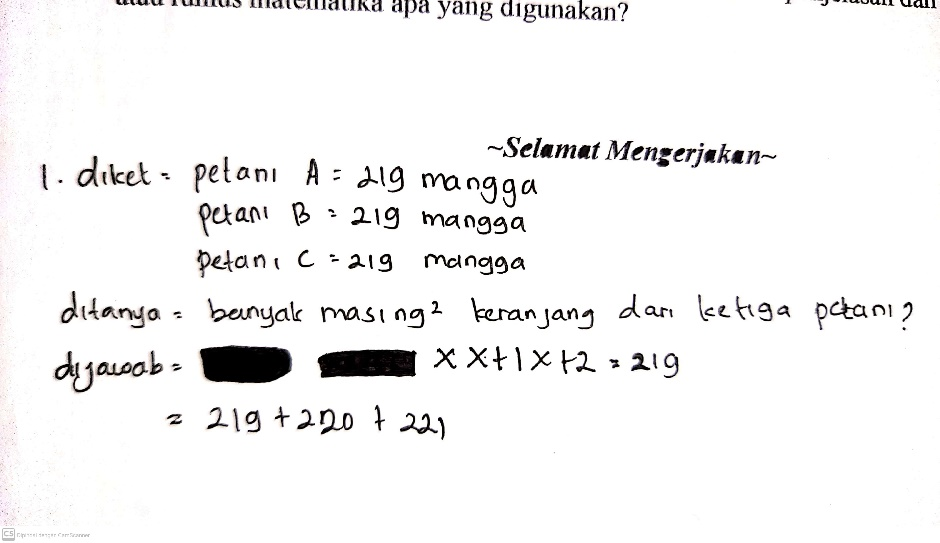 atau rumus matematika apa yang digunakan?
~Selamat Mengerjakan~
1. diket = petani A = 219 mangga
petani B = 219 mangga
petani C = 219 mangga
ditanya = banyak masing² keranjang dari ketiga petani?
dijawab = x x+1 x+2 = 219
= 219 + 220 + 221
CS Dipindai dengan CamScanner